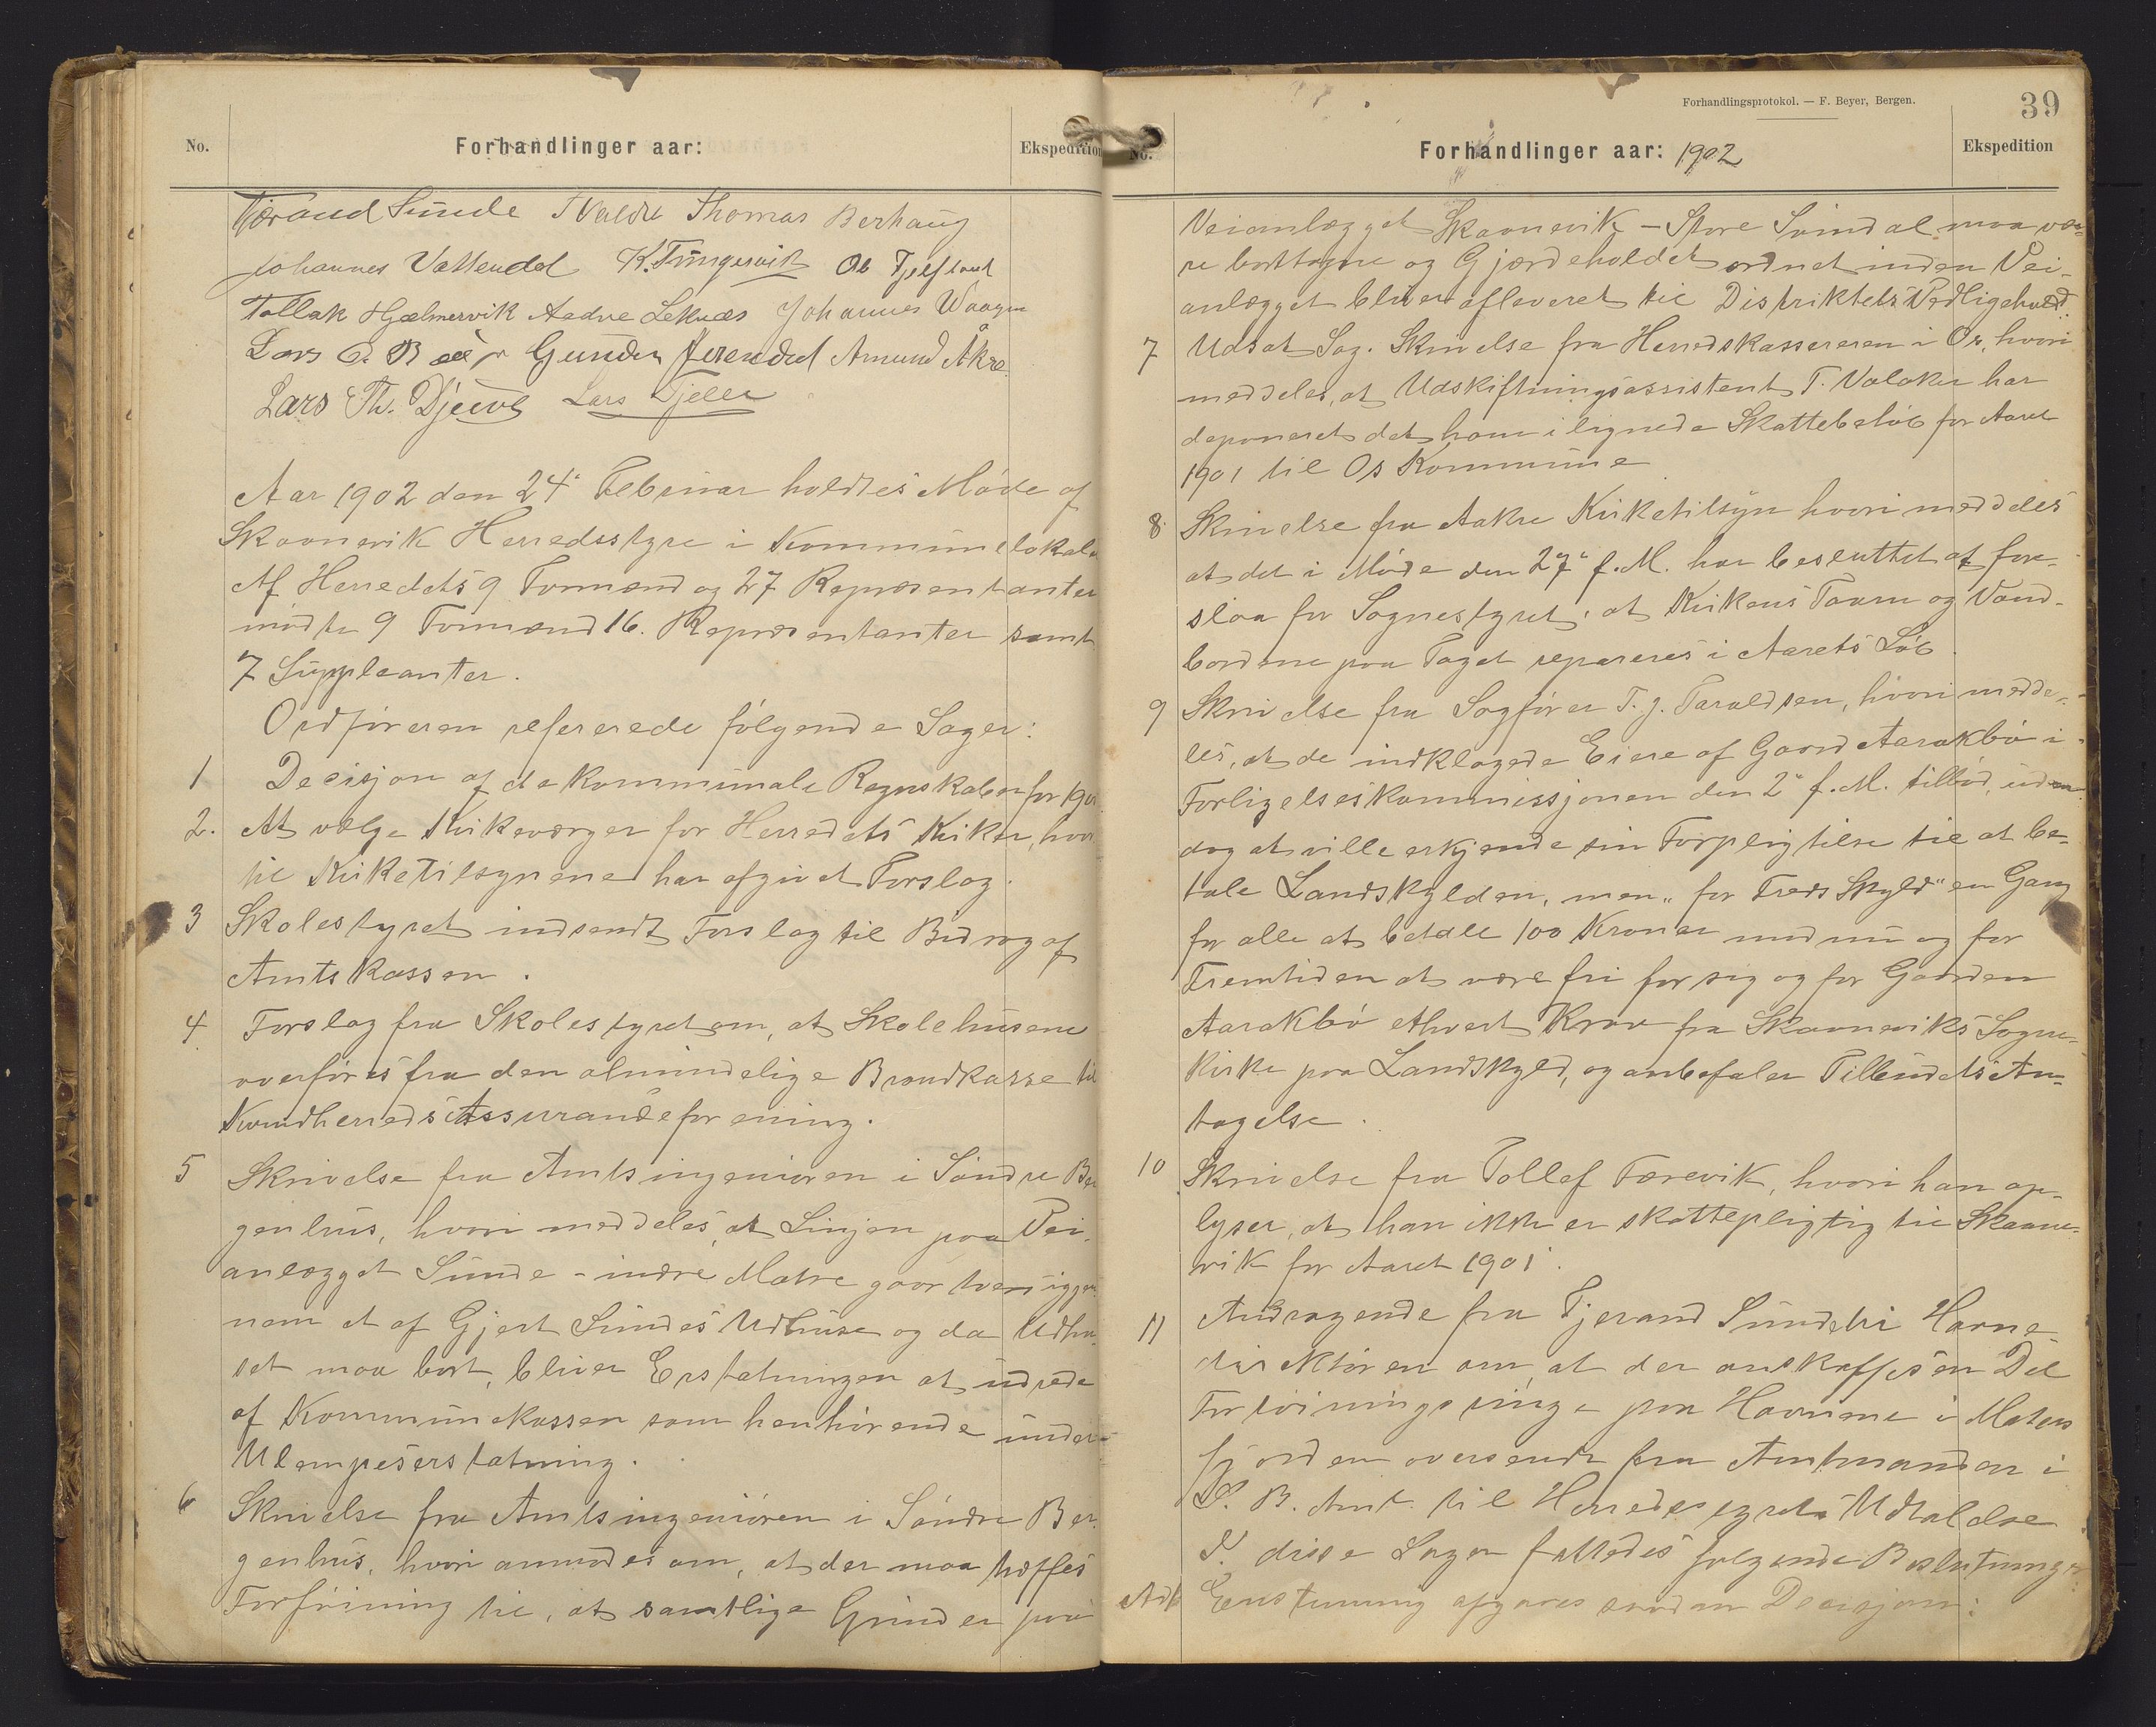 No.
Forhandlinger aar:
Ekspedition
Tjerand Sunde T Valdre Thomas Berhaug
Johannes Vattendal K. Tungesvik Ole Tjelflaat
Tollak Hjælmervik Aadne Leknæs Johannes Waagen
Lars Gunder Jerendal Amund Åkre
Lars Th. Djeeve Lars Fjelle
Aar 1902 den 24de Februar holdtes Møde af
Skaanevik Herredsstyre i Kommunelokalet
Af Herredets 9 Formænd og 27 Repræsentanter
mødte 9 Formænd 16. Repræsentanter samt
7 Suppleanter.
Ordføreren refererede følgende Sager:
1 Decisjon af de kommunale Regnskaber for 1901
2. At vælge Kirkeværger for Herredets Kirker, hvor-
til Kirketilsynene har afgivet Forslag.
3 Skolestyret indsendt Forslag til Bidrag af
Amtskassen.
4 Forslag fra Skolestyret om, at Skolehusene
overføres fra den almindelige Brandkasse til
Kvindherreds Assuranceforening.
5 Skrivelse fra Amtsingeniøren i Søndre Ber
genhus, hvori meddeles, at Linjen paa Vei-
anlægget Sunde - indre Matre gaar tvers igjen-
nem et af Gjert Sundes Udhuse og da Udhu-
set maa bort, bliver Erstatningen at udrede
af Kommunekassen som henhørende under
Ulempeserstatning.
6 Skrivelse fra Amtsingeniøren i Søndre Ber
genhus, hvori anmodes om, at der maa træffes
Forføining til, at samtlige Grinder paa
Forhandlingsprotokol. — F. Beyer, Bergen.
39
No.
Forhandlinger aar: 1902
Ekspedition
Veianlægget Skaanevik - Store Svindal maa væ-
re borttagne og Gjærdeholdet ordnet inden Vei-
anlægget bliver afleveret til Distriktets Vedligehold.
7 Udsat Sag. Skrivelse fra Herredskassereren i Os, hvori
meddeles, at Udskiftningsassistent T. Valaker har
deponeret det ham ilignede Skattebeløb for Aaret
1901 til Os Kommune
8 Skrivelse fra Aakre Kirketilsyn hvori meddeles
at det i Møde den 27de f.M. har besluttet at fore-
slaa for Sognestyret, at Kirkens Taarn og Vand-
bordene paa Taget repareres i Aarets Løb.
9 Skrivelse fra Sagfører T. J. Taraldsen, hvori medde-
les, at de indklagede Eiere af Gaard Aarakbø i
Forligelseskommissjonen den 2de f.M. tilbød, uden
dog at ville erkjende sin Forpligtelse til at be-
tale Landskylden, men „for Freds Skyld“ en Gang
for alle at betale 100 Kroner mod nu og for
Fremtiden at være fri for sig og for Gaarden
Aarakbø ethvert Krav fra Skaaneviks Sogne-
kirke paa Landskyld, og anbefaler Tilbudets An-
tagelse.
10 Skrivelse fra Tollef Færevik, hvori han op-
lyser, at han ikke er skattepligtig til Skaane-
vik for Aaret 1901.
11 Andragende fra Tjerand Sunde til Havne-
direktøren om, at der anskaffes en Del
Fortøiningsringe paa Havnene i Matres
fjorden oversendt fra Amtmanden i
S. B. Amt til Herredsstyrets Udtalelse
I disse Sager fattedes følgende Beslutninger:
Ad 1 Enstemmig afgaves saadan Decisjon: